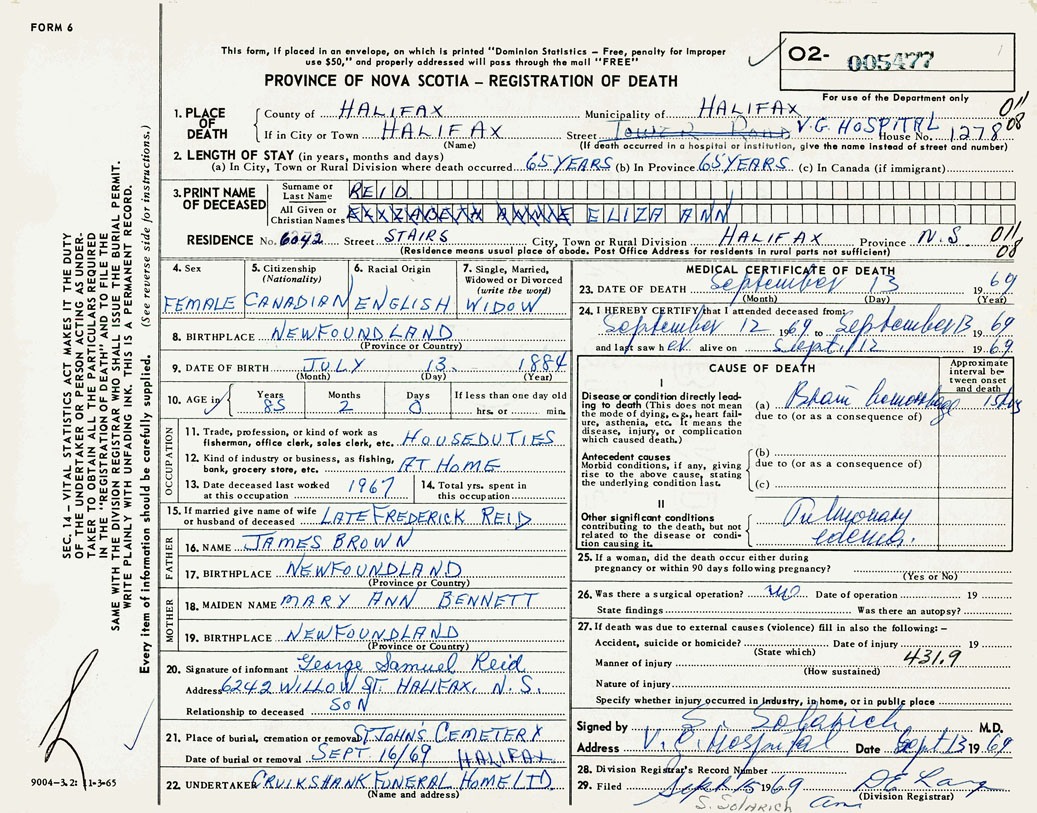 FORM 6
This form, if placed in an envelope, on which is printed "Dominion Statistics – Free, penalty for improper
use $50," and properly addressed will pass through the mail "FREE"
PROVINCE OF NOVA SCOTIA – REGISTRATION OF DEATH
02- 005477
For use of the Department only
011
08
1. PLACE OF DEATH
County of HALIFAX Municipality of HALIFAX
If in City or Town HALIFAX Street V.G. HOSPITAL House No. 1278
(Name) (If death occurred in a hospital or institution, give the name instead of street and number)
2. LENGTH OF STAY (in years, months and days)
(a) In City, Town or Rural Division where death occurred 65 YEARS (b) In Province 65 YEARS (c) In Canada (if immigrant)
3. PRINT NAME OF DECEASED
Surname or Last Name REID
All Given or Christian Names ELIZABETH ANNIE ELIZA ANN
RESIDENCE No. 6042 Street STAIRS City, Town or Rural Division HALIFAX Province N.S
011
08
(Residence means usual place of abode. Post Office Address for residents in rural parts not sufficient)
4. Sex
FEMALE
5. Citizenship
(Nationality)
CANADIAN
6. Racial Origin
ENGLISH
7. Single, Married,
Widowed or Divorced
(write the word)
WIDOW
8. BIRTHPLACE NEWFOUNDLAND
(Province or Country)
9. DATE OF BIRTH JULY 13. 1884
(Month) (Day) (Year)
10. AGE in
Years Months Days If less than one day old
85 2 0 hrs. or min.
OCCUPATION
11. Trade, profession, or kind of work as
fisherman, office clerk, sales clerk, etc. HOUSEDUTIES
12. Kind of industry or business, as fishing,
bank, grocery store, etc. AT HOME
13. Date deceased last worked
at this occupation 1967
14. Total yrs. spent in
this occupation
15. If married give name of wife
or husband of deceased LATE FREDERICK REID
FATHER
16. NAME JAMES BROWN
17. BIRTHPLACE NEWFOUNDLAND
(Province or Country)
MOTHER
18. MAIDEN NAME MARY ANN BENNETT
19. BIRTHPLACE NEWFOUNDLAND
(Province or Country)
20. Signature of informant George Samuel Reid
Address 6242 WILLOW ST. HALIFAX, N.S.
Relationship to deceased SON
21. Place of burial, cremation or removal ST JOHN'S CEMETERY
Date of burial or removal SEPT 16/69 HALIFAX
22. UNDERTAKER CRUIKSHANK FUNERAL HOME LTD.
(Name and address)
MEDICAL CERTIFICATE OF DEATH
23. DATE OF DEATH September 13 1969
(Month) (Day) (Year)
24. I HEREBY CERTIFY that I attended deceased from:
September 12 1969 to September 13 1969
and last saw her alive on Sept. 12 1969
CAUSE OF DEATH
Approximate
interval be-
tween onset
and death
I
Disease or condition directly lead-
ing to death (This does not mean
the mode of dying, e.g., heart fail-
ure, asthenia, etc. It means the
disease, injury, or complication
which caused death.)
(a) Brain hemorrhage
due to (or as a consequence of)
Antecedent causes
Morbid conditions, if any, giving
rise to the above cause, stating
the underlying condition last.
(b)
due to (or as a consequence of)
(c)
II
Other significant conditions
contributing to the death, but not
related to the disease or condi-
tion causing it.
Pulmonary
edema.
25. If a woman, did the death occur either during
pregnancy or within 90 days following pregnancy?
(Yes or No)
26. Was there a surgical operation? no Date of operation 19
State findings Was there an autopsy?
27. If death was due to external causes (violence) fill in also the following: –
Accident, suicide or homicide? Date of injury 19
(State which)
Manner of injury 431.9
(How sustained)
Nature of injury
Specify whether injury occurred in industry, in home, or in public place
Signed by M.D.
Address V. G. Hospital Date Sept 13 1969
28. Division Registrar's Record Number
29. Filed Sept 15 1969
(Division Registrar)
SEC. 14 – VITAL STATISTICS ACT MAKES IT THE DUTY
OF THE UNDERTAKER OR PERSON ACTING AS UNDER-
TAKER TO OBTAIN ALL THE PARTICULARS REQUIRED
IN THE "REGISTRATION OF DEATH" AND TO FILE THE
SAME WITH THE DIVISION REGISTRAR WHO SHALL ISSUE THE BURIAL PERMIT.
WRITE PLAINLY WITH UNFADING INK. THIS IS A PERMANENT RECORD.
Every item of information should be carefully supplied. (See reverse side for instructions.)
9004-3.2: 11-3-65